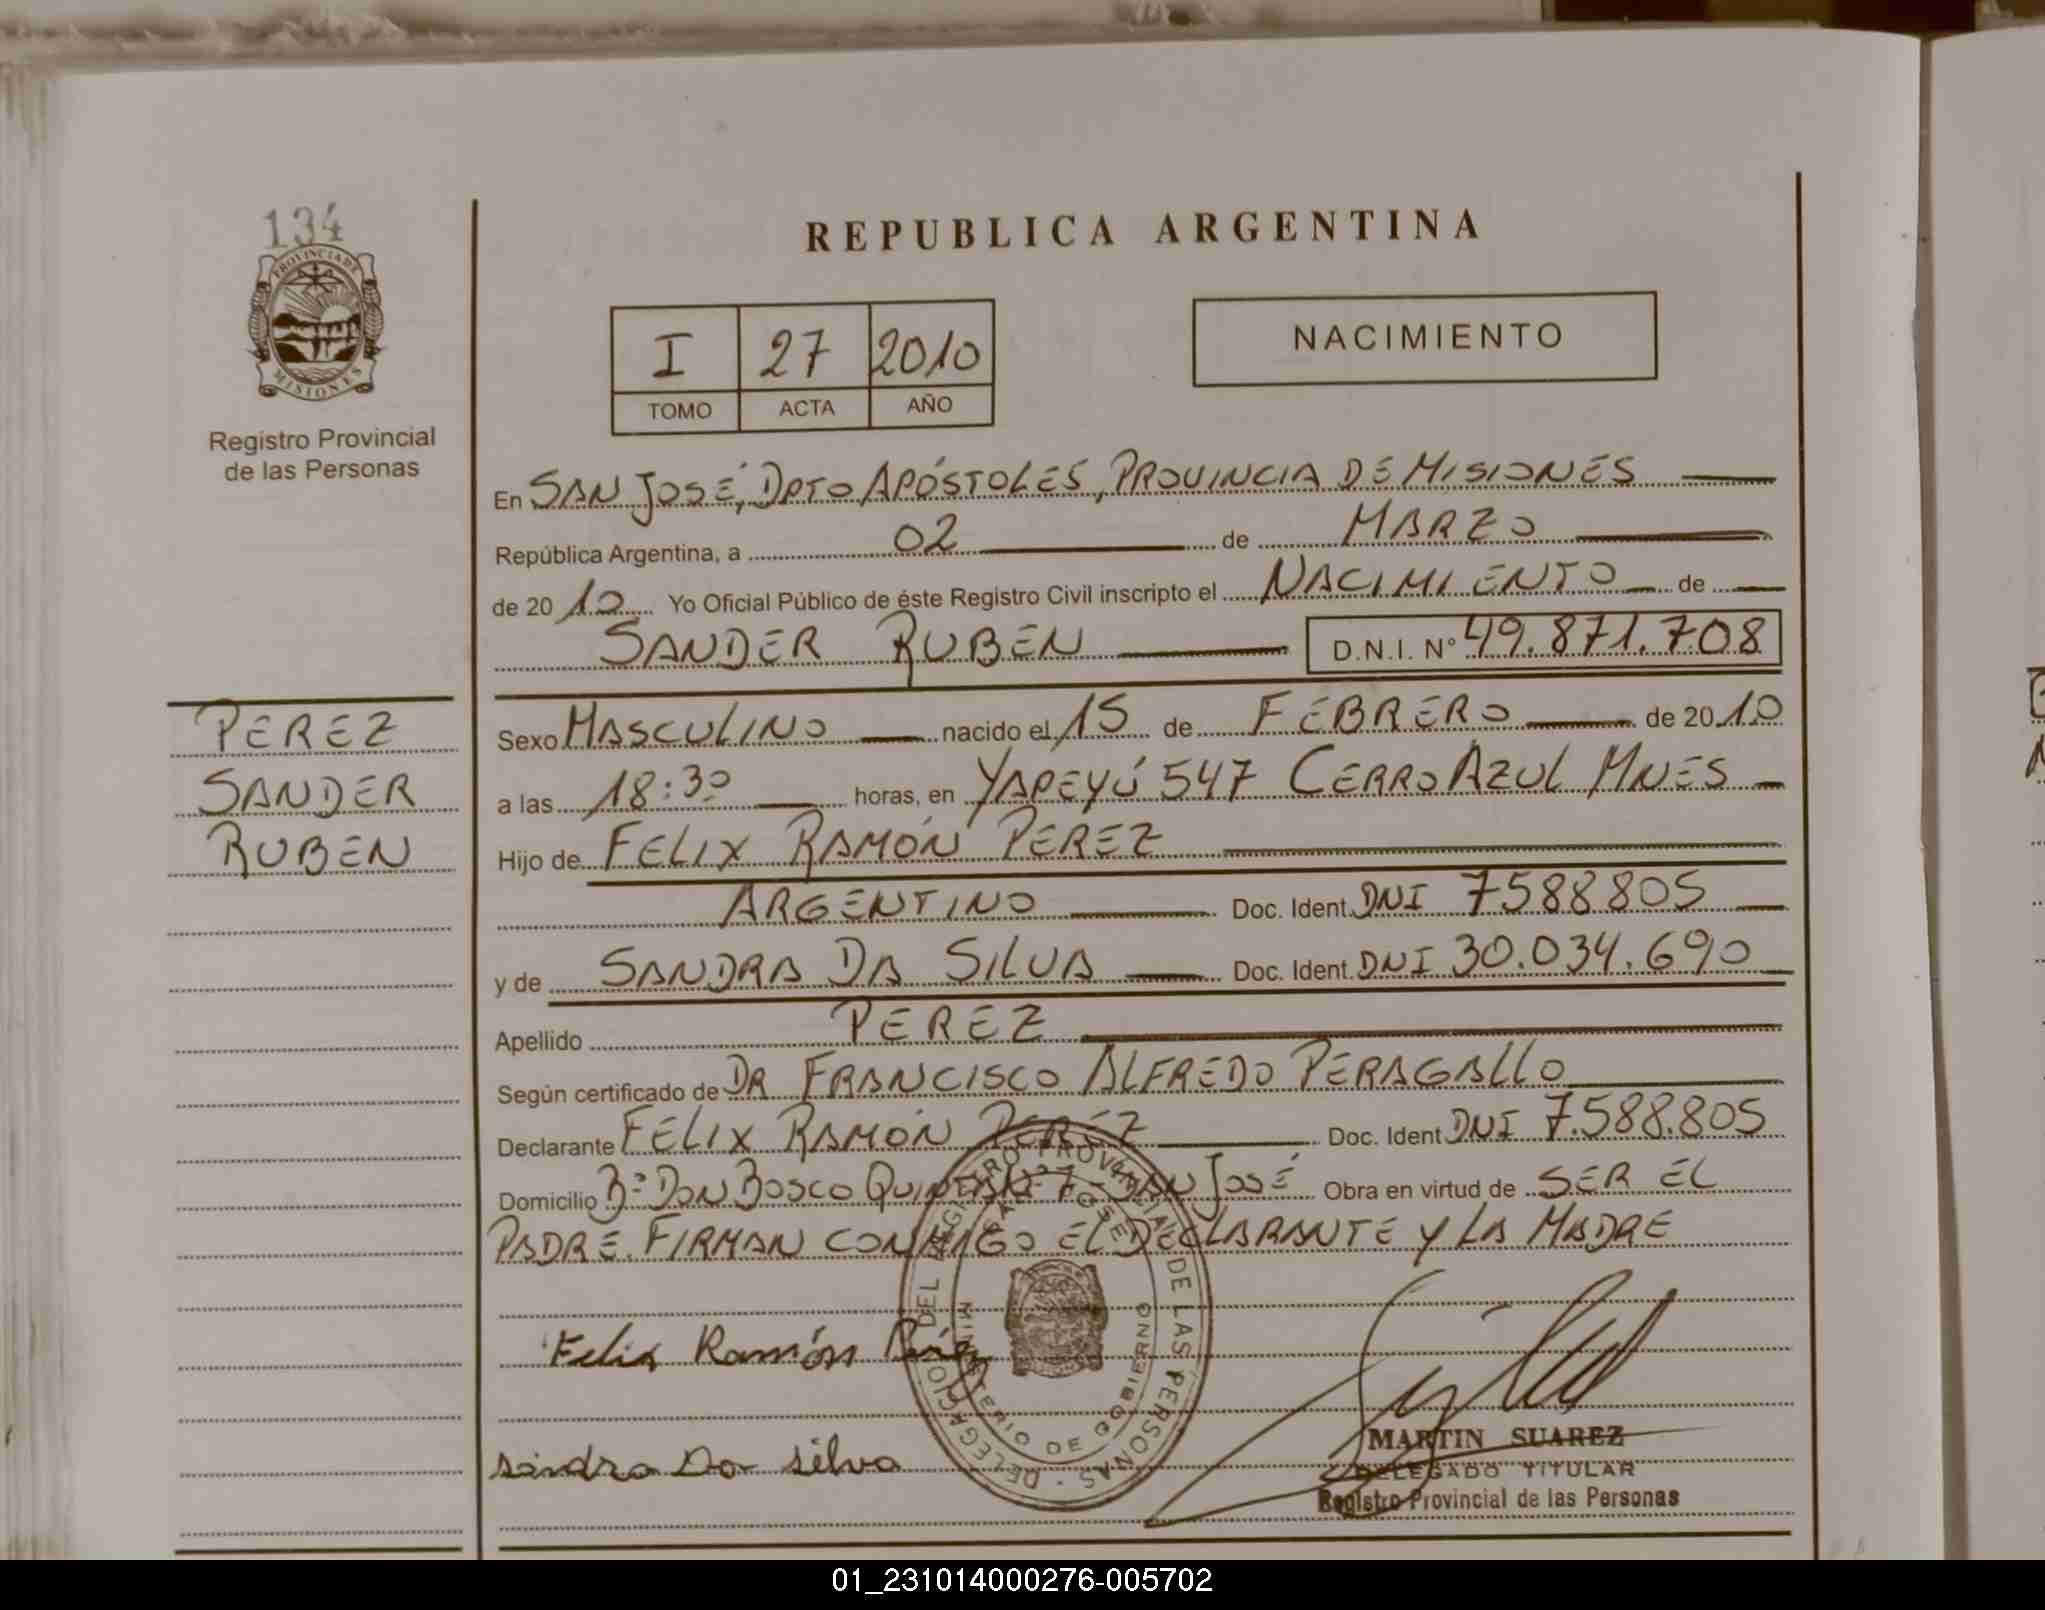 134
PROVINCIA DE
MISIONES
Registro Provincial
de las Personas
PEREZ
SANDER
RUBEN
REPUBLICA ARGENTINA
I 27 2010
TOMO ACTA AÑO
NACIMIENTO
En SAN JOSÉ, DPTO APÓSTOLES, PROVINCIA DE MISIONES
República Argentina, a 02 de MARZO
de 2010 Yo Oficial Público de éste Registro Civil inscripto el NACIMIENTO de
SANDER RUBEN D.N.I. Nº 49.871.708
Sexo MASCULINO nacido el 15 de FEBRERO de 2010
a las 18:30 horas, en YAPEYÚ 547 CERRO AZUL MNES
Hijo de FELIX RAMÓN PEREZ
ARGENTINO Doc. Ident. DNI 7588805
y de SANDRA DA SILVA Doc. Ident. DNI 30.034.690
Apellido PEREZ
Según certificado de DR FRANCISCO ALFREDO PERAGALLO
Declarante FELIX RAMÓN PEREZ Doc. Ident DNI 7.588.805
Domicilio Bº DON BOSCO 7 - SAN JOSÉ Obra en virtud de SER EL
PADRE. FIRMAN CONMIGO EL DECLARANTE Y LA MADRE
Felix Ramón Pérez
Sandra Da Silva
DELEGACIO DEL REGISTRO PROVINCIAL DE LAS PERSONAS
SAN JOSE
MINISTERIO DE GOBIERNO
MARTIN SUAREZ
DELEGADO TITULAR
Registro Provincial de las Personas
01_231014000276-005702